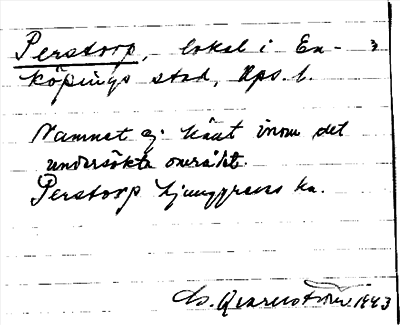 Perstorp, lokal i En- 3
köpings stad, Ups. l.
Namnet ej känt inom det
undersökta området.
Perstorp Ljunggrens ka.
1943